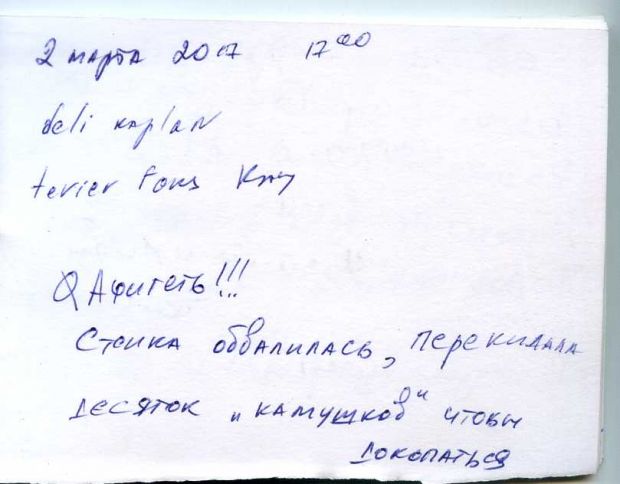 2 марта 2017 17 00
deli kaplan
terier Fons Клу
Афигеть!!!
Стенка обвалилась, перекидала
десяток "камушков" чтобы
докопаться